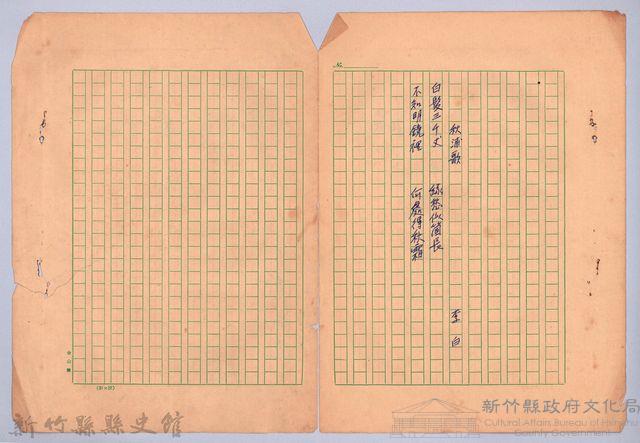 秋浦歌 李白
白髮三千丈 緣愁似箇長
不知明鏡裡 何處得秋霜
新竹縣縣史館
新竹縣政府文化局
Cultural Affairs Bureau of Hsinchu County Government